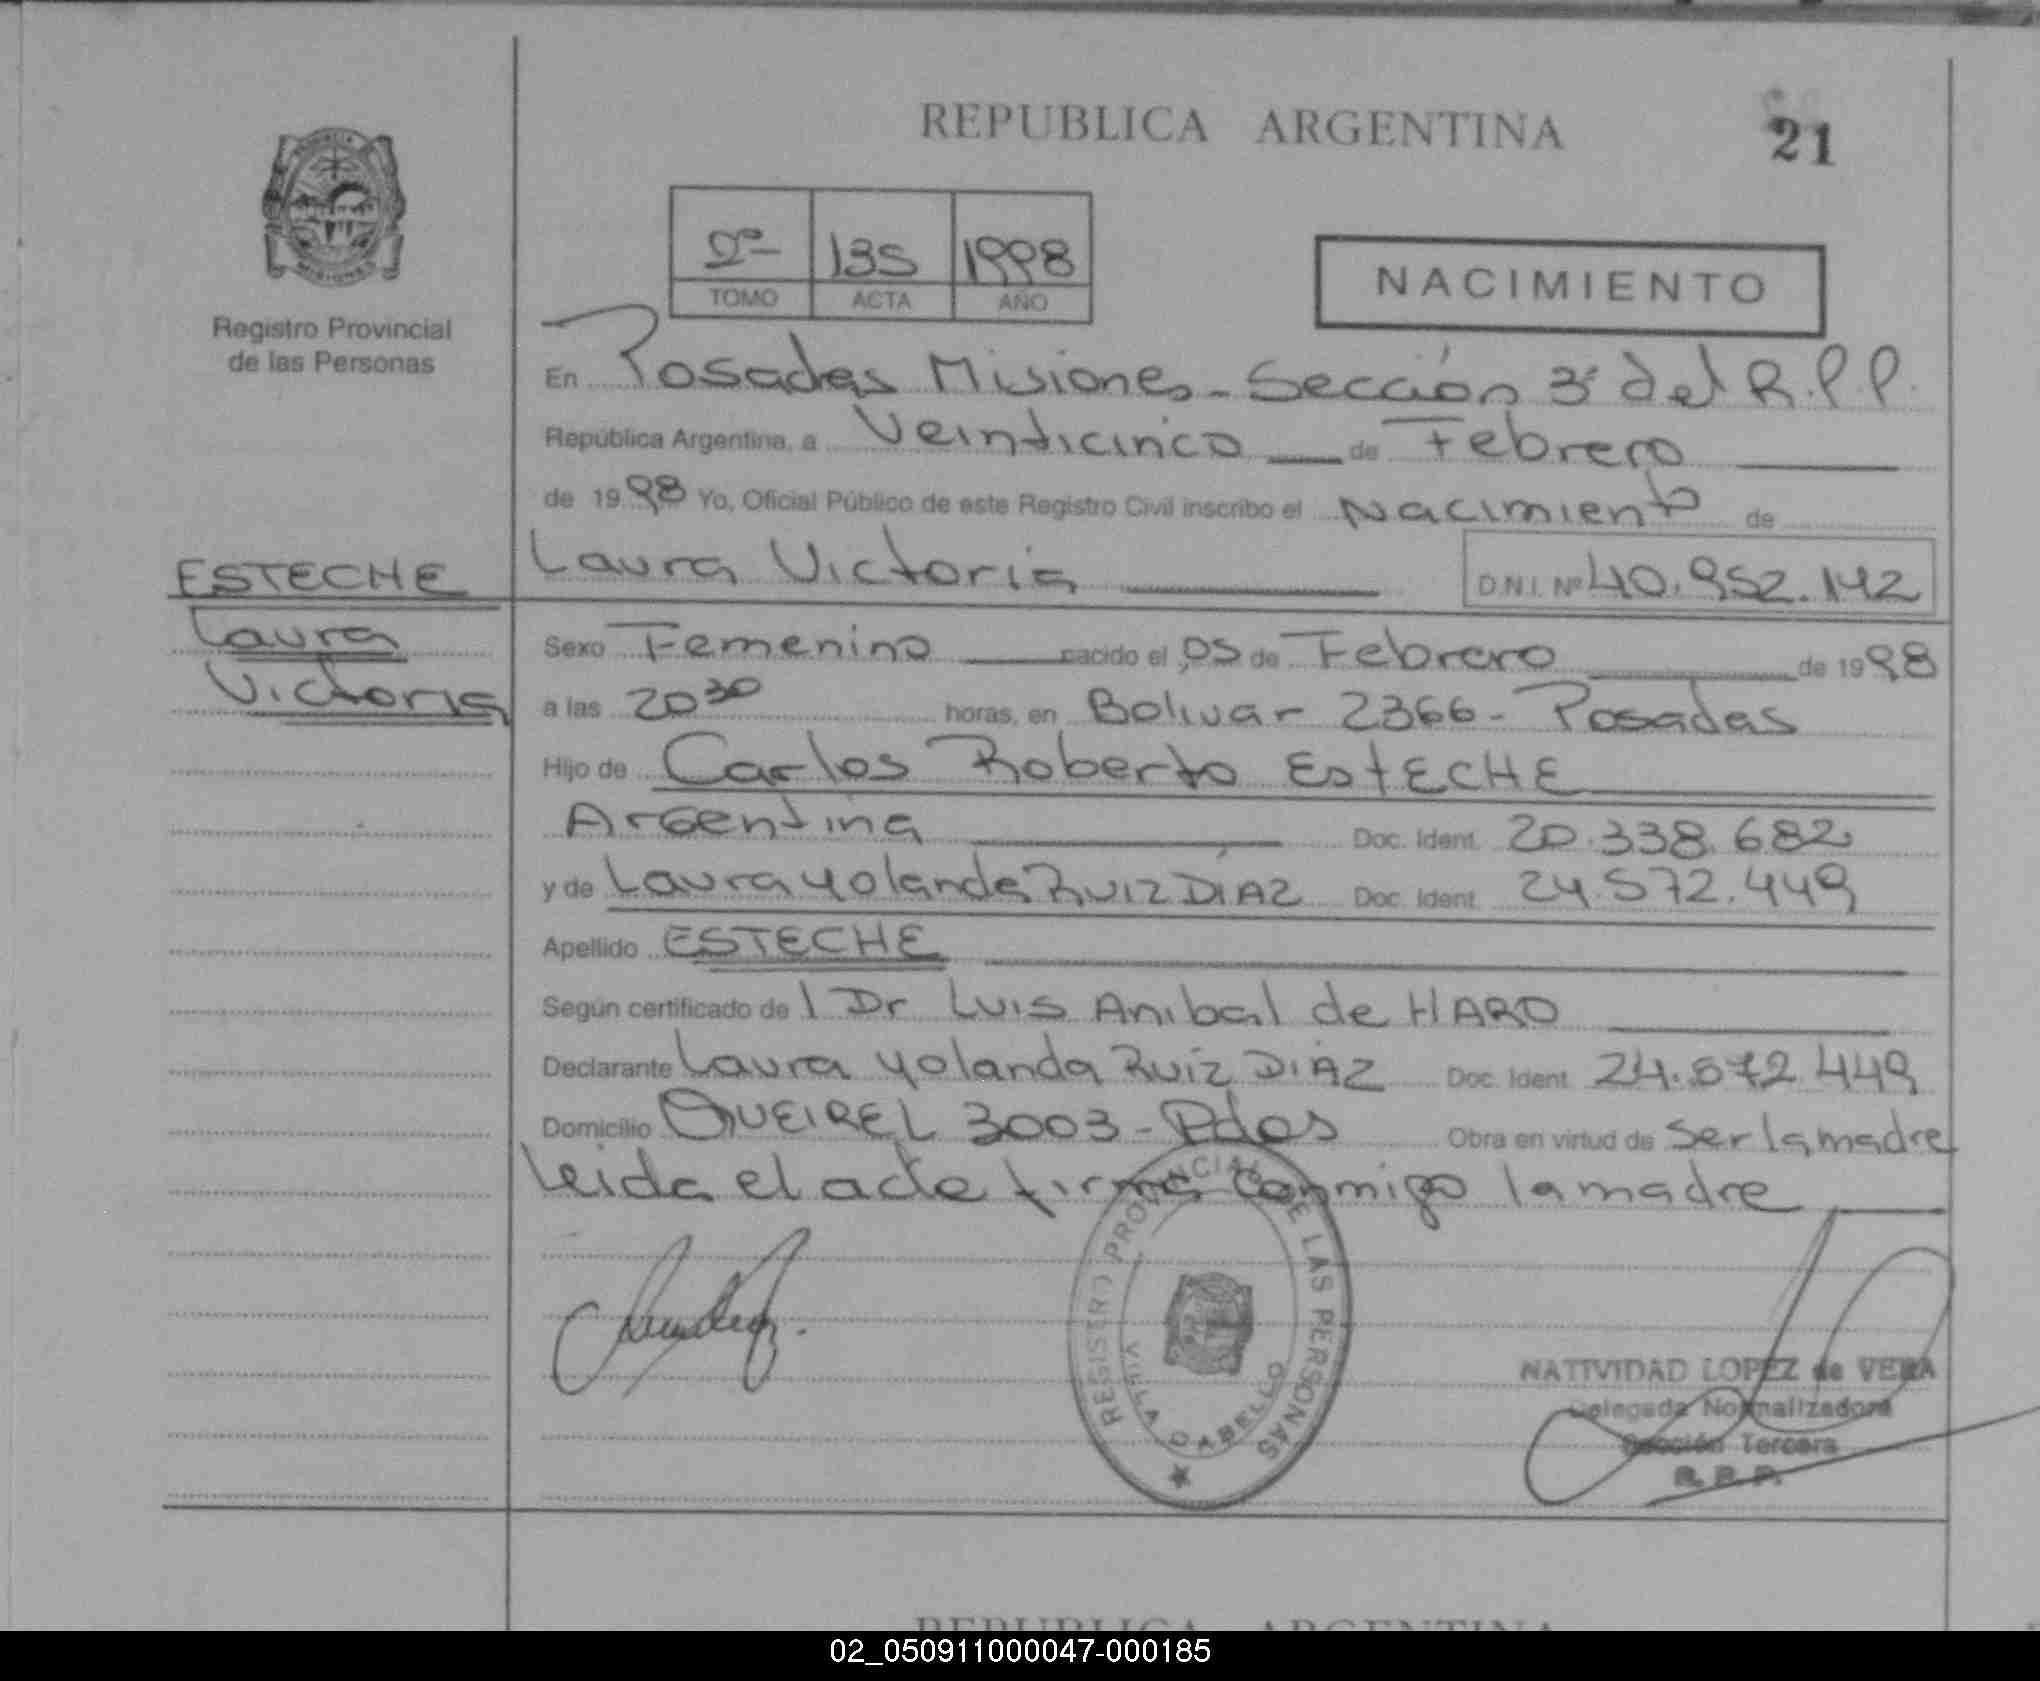 REPUBLICA ARGENTINA
21
2º 135 1998
TOMO ACTA AÑO
NACIMIENTO
Registro Provincial
de las Personas
En Posadas Misiones - Sección 3ª del R.P.P.
República Argentina, a Veinticinco de Febrero
de 1998 Yo, Oficial Público de este Registro Civil inscribo el Nacimiento de
Laura Victoria D.N.I. Nº 40.952.142
ESTECHE
Laura
Victoria
Sexo Femenino nacido el 05 de Febrero de 1998
a las 20 30 horas, en Bolivar 2366 - Posadas
Hijo de Carlos Roberto EstECHE
Argentina Doc. Ident. 20.338.682
y de Laura Yolanda RUIZ DÍAZ Doc. Ident. 24.572.449
Apellido ESTECHE
Según certificado de l Dr Luis Anibal de HARO
Declarante Laura Yolanda Ruíz DíAZ Doc. Ident 24.572.449
Domicilio QUEIREL 3003 - Pdas Obra en virtud de ser la madre
Leida el acta firma conmigo la madre
REGISTRO PROVINCIAL DE LAS PERSONAS
VILLA CABELLO
NATIVIDAD LOPEZ de VERA
Delegada Normalizadora
Sección Tercera
R. P. P.
REPUBLICA ARGENTINA
02_050911000047-000185